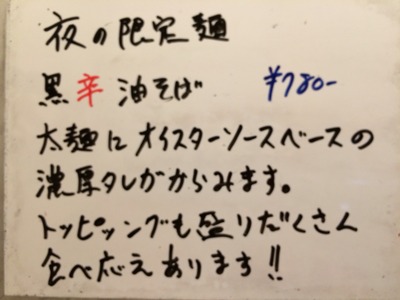 夜の限定麺
黒辛油そば ¥780-
太麺にオイスターソースベースの
濃厚タレがからみます。
トッピングも盛りだくさん
食べ応えあります!!